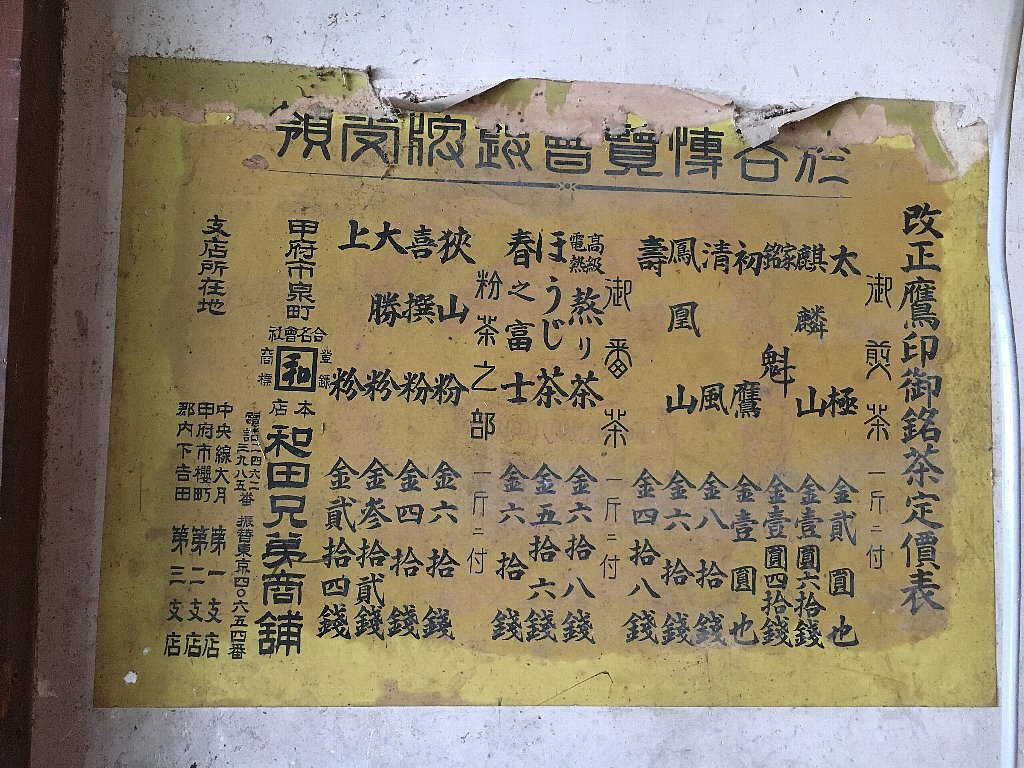 於各博覽會 牌受領
改正鷹印御銘茶定價表
御煎茶 一斤ニ付
太極 金貳圓也
麒麟山 金壹圓六拾錢
家銘魁 金壹圓四拾錢
初鷹 金壹圓也
清風 金八拾錢
鳳凰山 金六拾錢
壽 金四拾八錢
御番茶 一斤ニ付
高級電熱熬り茶 金六拾八錢
ほうじ茶 金五拾六錢
春之富士 金六拾錢
粉茶之部 一斤ニ付
狹山粉 金六拾錢
喜撰粉 金四拾錢
大勝粉 金参拾貳錢
上粉 金貳拾四錢
甲府市泉町
合名會社
登録
和
商標
本店
和田兄弟商舗
電話二四六二番
三九八五番
振替東京四〇六五四番
支店所在地
中央線大月 第一支店
甲府市櫻町 第二支店
郡内下吉田 第三支店